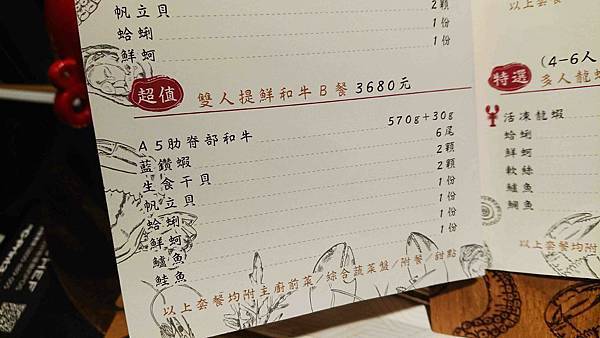 帆立貝 2顆
蛤蜊 1份
鮮蚵 1份
超值 雙人提鮮和牛B餐 3680元
A5肋脊部和牛 570g+30g
藍鑽蝦 6尾
生食干貝 2顆
帆立貝 2顆
蛤蜊 1份
鮮蚵 1份
鱸魚 1份
鮭魚 1份
以上套餐均附主廚前菜/綜合蔬菜盤/附餐/甜點
以上套餐
(4-6人
特選 多人龍
活凍龍蝦
蛤蜊
鮮蚵
軟絲
鱸魚
鯛魚
以上套餐均附